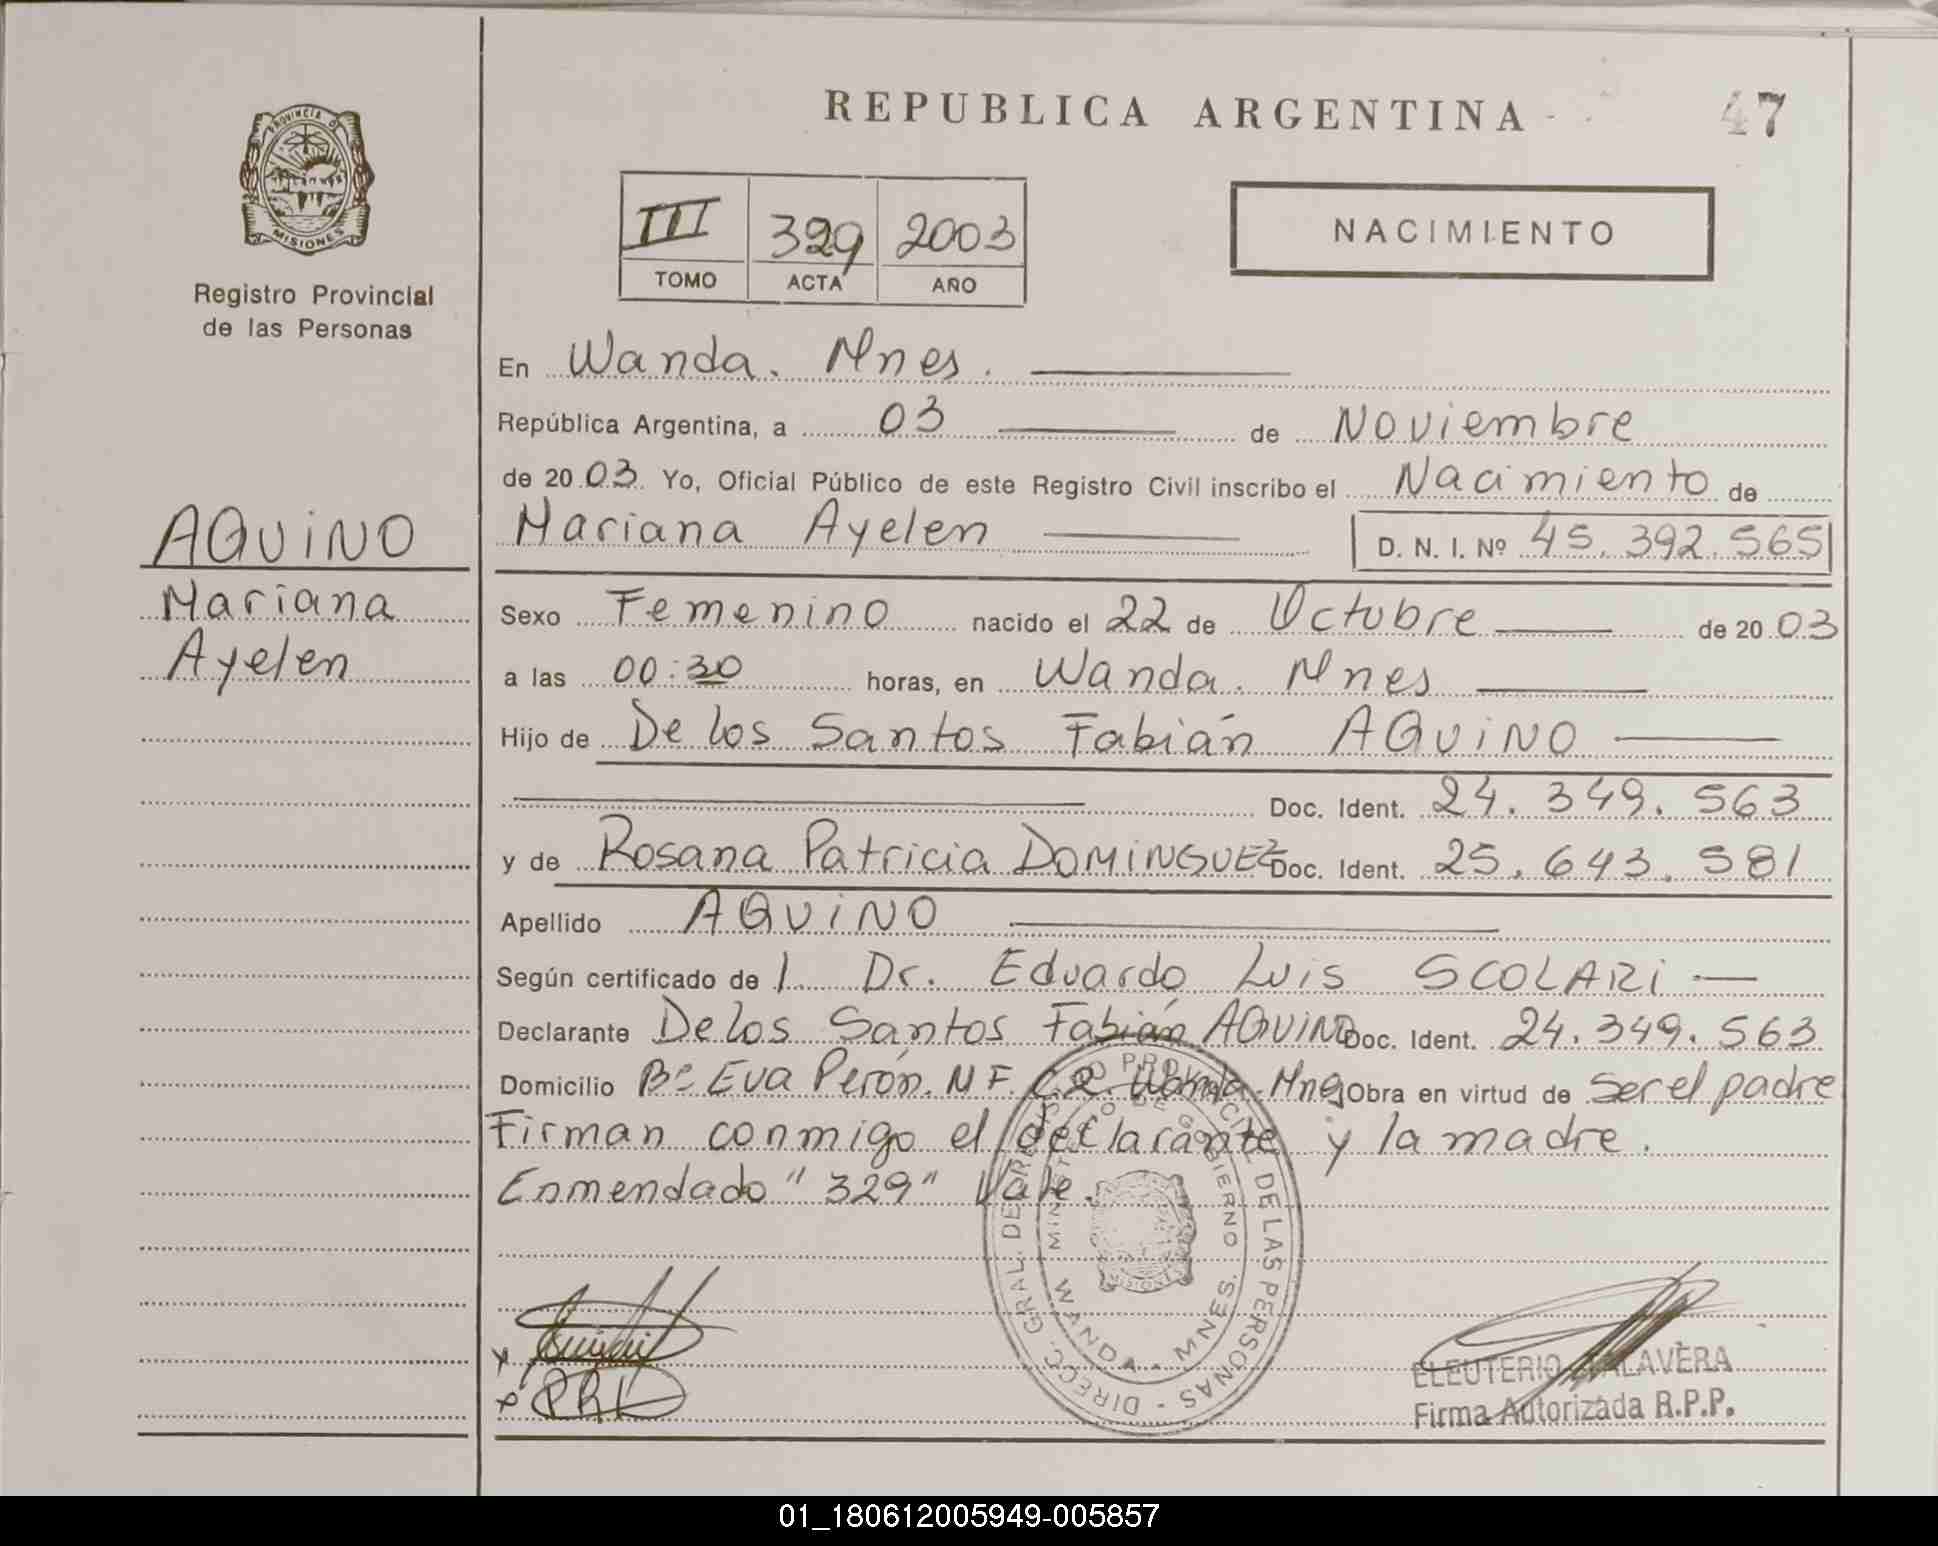 REPUBLICA ARGENTINA
47
PROVINCIA DE
MISIONES
Registro Provincial
de las Personas
III 329 2003
TOMO ACTA AÑO
NACIMIENTO
AQUINO
Mariana
Ayelen
En Wanda. Mnes.
República Argentina, a 03 de Noviembre
de 2003 Yo, Oficial Público de este Registro Civil inscribo el Nacimiento de
Mariana Ayelen D. N. I. Nº 45.392.565
Sexo Femenino nacido el 22 de Octubre de 2003
a las 00:30 horas, en Wanda. Mnes
Hijo de De los Santos Fabián AQUINO
Doc. Ident. 24.349.563
y de Rosana Patricia DOMINGUEZ Doc. Ident. 25.643.581
Apellido AQUINO
Según certificado de l Dr. Eduardo Luis SCOLARI
Declarante De los Santos Fabián AQUINO Doc. Ident. 24.349.563
Domicilio Bº Eva Perón. Wanda. Mnes Obra en virtud de ser el padre
Firman conmigo el declarante y la madre.
Enmendado "329" Vale.
DIRECC. GRAL. DE REGISTRO PROVINCIAL DE LAS PERSONAS
MINISTERIO DE GOBIERNO
MISIONES
WANDA - MNES.
ELEUTERIO TALAVERA
Firma Autorizada R.P.P.
01_180612005949-005857